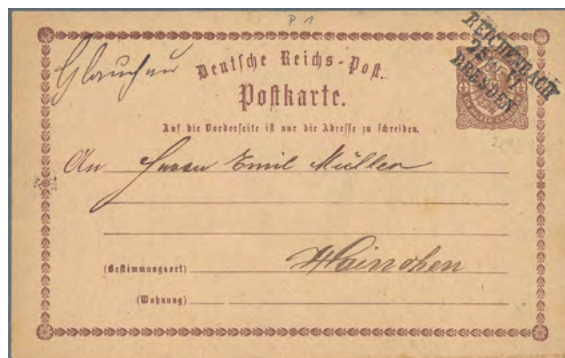 P 1
Glauchau
REICHENBACH
28 4 VI
DRESDEN
Deutsche Reichs-Post.
Postkarte.
Auf die Vorderseite ist nur die Adresse zu schreiben.
An Herrn Emil Müller
(Bestimmungsort) Hainichen
(Wohnung)